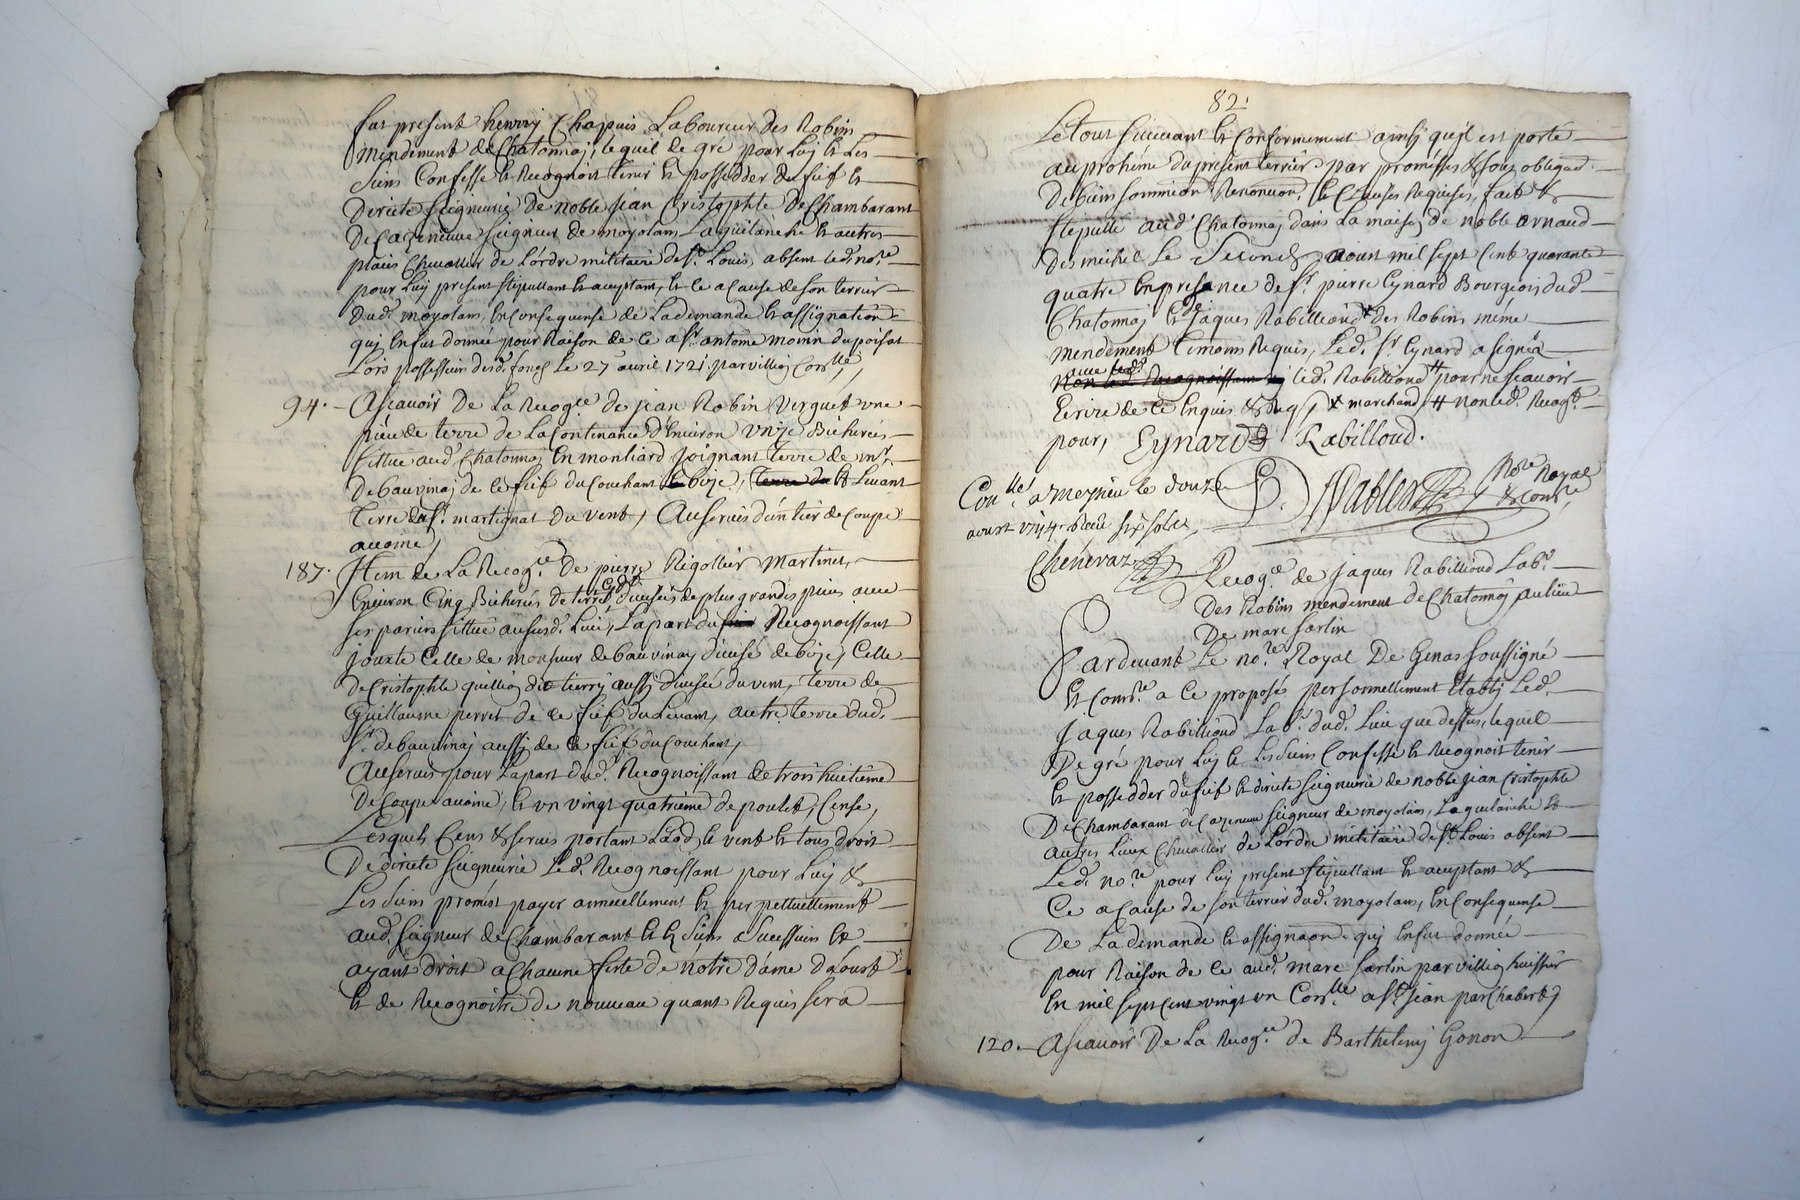 fut present henry Chapuis Laboureur des Robins
mendement de Chatonnaj, lequel de gré pour Luy & Les
siens Confesse & Recognoit tenir & possedder du fief &
directe seigneurie de noble jean Cristophle De Chambarant
De Cazeneuve seigneur de moyolam Laquilanche & autres
places Chevallier de L'ordre militaire de st. Louis, absent led. nore
pour Luy present stipullant & acceptant, & ce a Cause de son terrier
dud. moyolam, En Consequense de La demande & assignation
quj Enfut donnée pour Raison de Ce a sr. antoine moinn du poisat
Lors possesseur desd. fonds Le 27e avril 1721. par villion Conlle,
94. Ascavoir De La Recogce de jean Robin Verguet une
piece de terre de La Continance d'Environ Unze Bicherées
sittué aud. Chatonnaj En montiard joignant terre de mr.
De bauvinaj de Ce fief du Couchant & bize, terre du & Levant
terre de sr. martignat du vent, Auservis d'un tier de Couppe
avoine,
187. Item de La Recog.ce De pierre Rigollier Martinet,
Environ Cinq Bicherées de terre divisées de plus grandes pieces avec
ses pariers sittué au susd. Lieu, La part du Recognoissant
jouxte Celle de monsieur de bauvinay divisé de bize, Celle
de Cristophle quillion dit tierry aussj divisée du vent, terre de
Guillaume perret de ce fief du Levant, autre terre dud.
sr. de bauvinaj aussj de Ce fief du Couchant,
Auservis pour Lapart dud. Recognoissant de trois huitieme
De Coupe avoine, & un vingt quatrieme de poulet, Cense,
Lesquels Cens & servis portant Laod, & vent & tous droit
De directe seigneurie Led. Recognoissant pour Luy &
Les siens promést payer annuellement & perpettuellement
aud. seigneur de Chambarant & Les siens successeurs &
ayant droit a Chacune feste de notre dame d'aoust
& de Recognoitre de nouveau quant Requis sera
82.
Le tout suivant & Conformement ainsy qu'il est porté
au prohéme du présent terrier par promesses & sous obligaõn
De biens sommion Renonuon, & Clauses Requises, fait &
stipullé aud. Chatonnaj dans La maison de noble arnaud
Des michel Le Second aoust mil sept Cent quarante
quatre En presence de sr. pierre Eynard Bourgeois dud.
Chatonnaj & de jaques Rabilliond x des Robins méme
mendement temoins Requis, Led. sr Eynard a signé
avec led.
Non led. Recognoissant nj led. Rabilliond # pour ne scavoir
Ecrire de Ce Enquis & Req / x marchand / # non led. Recogt.
pour, Eynard Rabilloud.
Conlle. a Meyrieu le douze
aoust 1744. Recu six sols,
Chenevaz
Nablet Nore Royal
& Comre
Recog.ce de jaques Rabilliond Labr.
Des Robins mendement de Chatonnaj au lieu
De marc sarlin
Pardevant Le no.re Royal De Genas soussigné
& Comre a Ce proposé personnellement Etablj Led.
jaques Rabilliond Labr. dud. Lieu que dessus, lequel
De gré pour Luj & Les siens Confesse & Recognoit tenir
& possedder du fief & directe seigneurie de noble jean Cristophle
De Chambarant de Cazeneuve seigneur de moyolam, Laquilanche &
autres Lieux Chevallier de L'ordre militaire de st. Louis absent
Led. no.re pour luy present stipullant & acceptant &
Ce a Cause de son terrier dud. moyolam, En Consequense
De La demande & assignaõn quj Enfut donnée
pour Raison de Ce aud. marc sarlin par villion huissier
En mil sept Cent vingt un Conlle. a st. jean par Chabert,
120. Ascavoir De La Recog.ce de Barthelemj Gonon